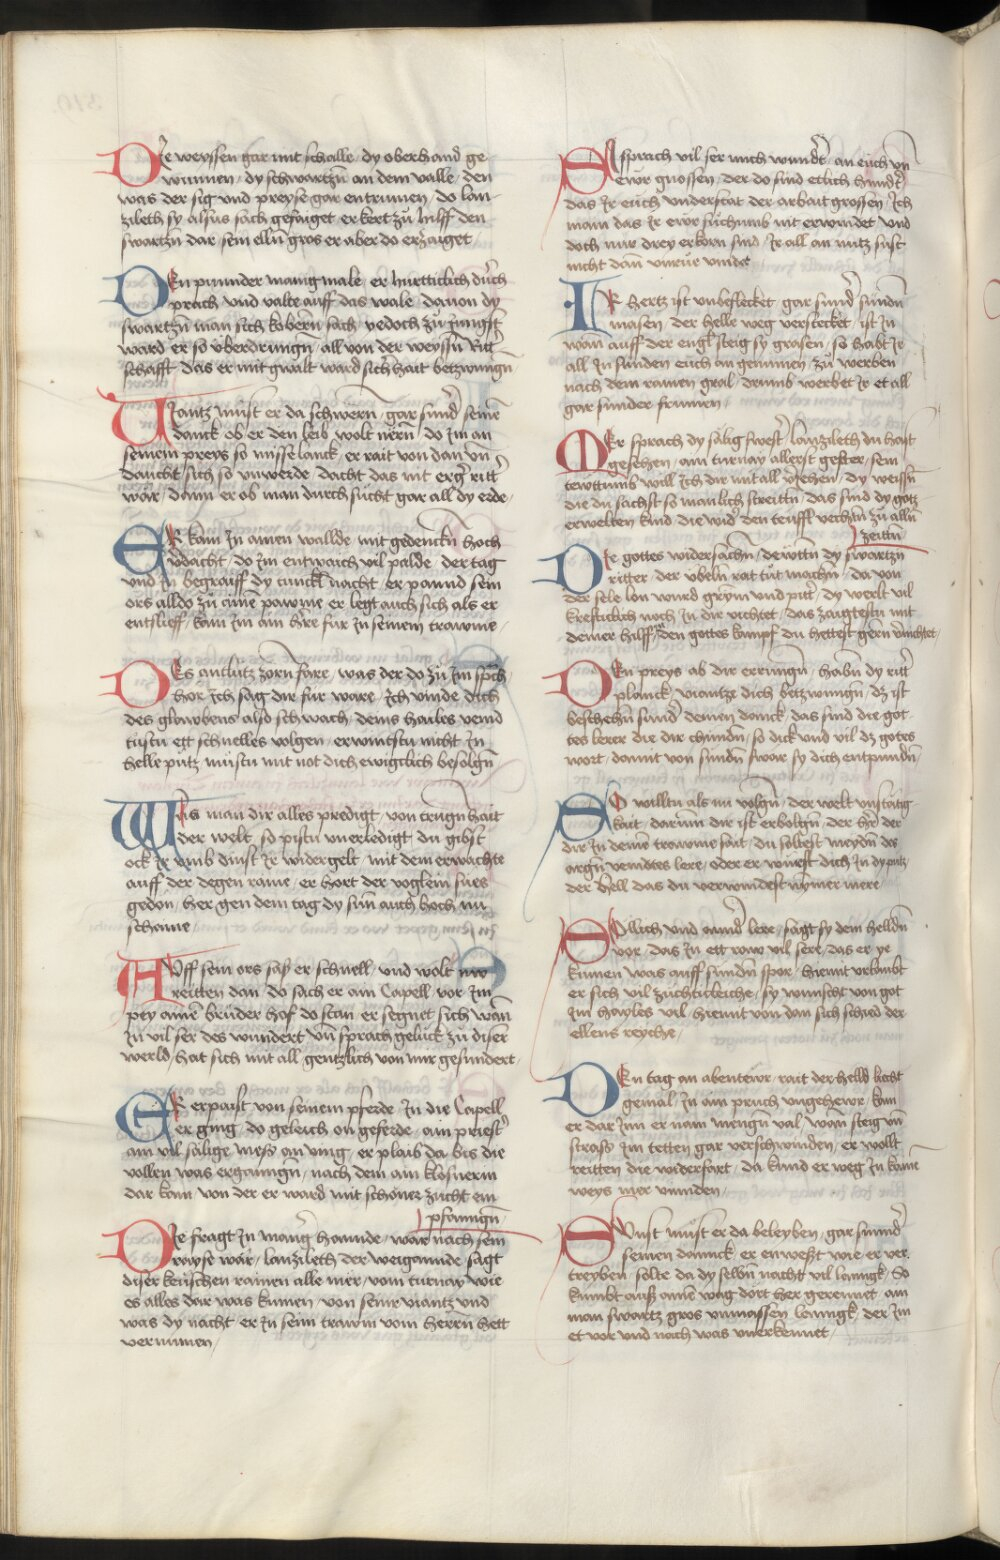 Die weyssen gar mit schalle / dy oberhand ge
wunnen / dy schwartzn an dem valle / den
was der sig und preyse gar entrunnen / do lan-
zileth sy alsus sach gesaiget / er kert zu hilff den
swartzn dar / sein ellen gros er aber da erzaiget
Den puunder manig male / er hurtticlich durch
prach / und valte auff das wale / davon dy
swartzn man sich kobern sach / yedoch zu jungst
ward er so uberdrungn / all von der weyssn Ritt
schafft / das er mit gwalt ward sich hait betzwungn
Viantz must er da schwern / gar sund seine
danck / ob er den leib wolt nern / do Im an
seinem preys so misselanck / er rait von dan vn
daucht sich so unwerde / dacht das nit erg ritt
wär / dann er ob man durch sucht gar all dy erde
Er kam Zu ainen wallde / mit gedenckn hoch
verdacht / do Im entwaich vil palde / der tag
und In begraiff dy tunckl nacht / er pannd sein
ors alldo zu aine pawme / er legt auch sich als er
entslieff / kam Im ain here für In seinem trawme
Des antlutz zorn fare / was der do zu Im sprch
hor Ich sag dir für ware / Ich vinde dich
des glawbens also schwach / deins hailes veind
tustu ett schnelles volgen / erwintstu nicht In
helle putz mustu mit not dich ewigclich besolgn
Was man dir alles predigt / von trugnhait
der welt / so pistu unerledigt / du gibst
ock Ir umb dinst Ir widergelt / mit dem erwachte
auff der degen raine / er hort der voglein sues
gedon / her gen dem tag dy sün auch hoch nu
schaine
Auff sein ors sass er schnell / und wolt
reitten dan / do sach er ain Capell / vor Im
pey ainer bruder hof do stan / er segnet sich wan
In vil ser des wundert / vn sprach gelück zu diser
werld / hat sich mit all gentzlich von mir gesundert
Er erpaist von seinem pferde / In die Capell
er ging / do geleich on geferde / ain priest
ain vil sälige mess an ving / er plaib da bis die
vollen was ergangn / nach dem ain klosnerin
dar kam / von der er ward mit schoner zucht em
pfanngn
Die fragt In mang hannde / war nach sein
rayse wär / lanzileth der weigannde / sagt
diser keuschen rainen alle mer / vom turnay wie
es alles dar was kumen / von seine viantz und
was dy nacht er In seim traum vom herrn hett
vernumen /
Sy sprach vil ser mich wundt / an euch vn
ewr gnossen / der do sind etlich hundt
das Ir euch understat der arbait grossen / Ich
main das Ir ewr suchunns nit erwindet / und
doch nur drey erkorn sind / Ir all an nutz sust
nicht dan unrue vindet
Ir hertz ist unbeflecket / gar sund sundn
masen / der helle weg verstecket / ist In
wan auff der engl steig sy grasen / so habt Ir
all In sunden euch an genumen / zu werben
nach dem rainen gral / drumb werbet Ir et all
gar sunder frumen
Mer sprach dy sälig swest / lanzileth du hast
gesehen / ain turnay allerst gester / sein
tewttumb will Ich dir mit all veriehen / dy weissn
die du sachst so manlich streittn / das sind dy gotz
erwelten kind / die wid den teuffl vechtn zu alln
zeittn
Die gottes widersachn / dewttn dy swartzn
ritter / der ubeln rat tut machn / da von
der sele lon wurd grym und pitt / dy werlt vil
krefticlich noch In dir vichtet / das zaigtestu mit
deiner hilff / den gottes kampf du hettest gern vernichtet
Den preys ab dir errungn / habn dy ritt
planck / viantze dich betzwungn / dz ist
beschehn sund deinen danck / das sind die got-
tes lerer die dir chundn / so dick und vil dz gotes
wort / damit von sundn swar sy dich entpundn
So willtu als nu volgn / der welt unstätig
kait / darum dir ist erbolgn / der her der
dir In deine trawme sait / du soltest meyden des
argn veindes lere / oder er wuerff dich In dy putz
der hell das du verwindest nymer mere
Sollich und annd lere / sagt sy dem helldn
vor / das In ett raw vil sere / das er ye
kumen was auff sundn spor / hiemit urlaubt
er sich vil zuchticleiche / sy wunscht von got
Im hayles vil / hiemit von dan sich schied der
ellens reyche
Den tag an abentewr / rait der helld licht
gemal / In ain pruch ungehewr / kam
er dar Im er nam mengn val / wan steig vn
strass Im tetten gar verschwinden / er wollt
reitten die widerfart / da kund er weg In kaine
weys mer vinnden
Sunst must er da beleyben / gar sunnd
seinen dannck / er enwesst wie er ver
treyben / solte da dy selbn nacht vil lanngk / So
kumbt auss aine wag dort her gerennet / ain
man swartz gros unmassen lanngk / der Im
et vor und nach was unerkennet